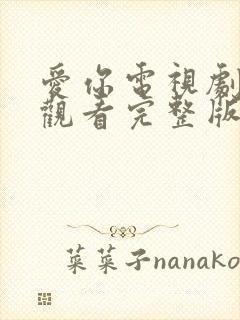 愛你電視劇
觀看完整版
菜菜子nanako